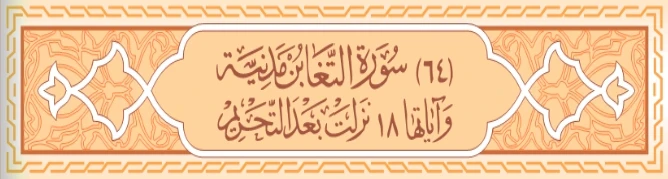 (٦٤) سُورَة التَّغَابُن مَدَنِيَّة
وَآيَاتُهَا ١٨ نَزَلَت بَعْدَ التَّحْرِيم